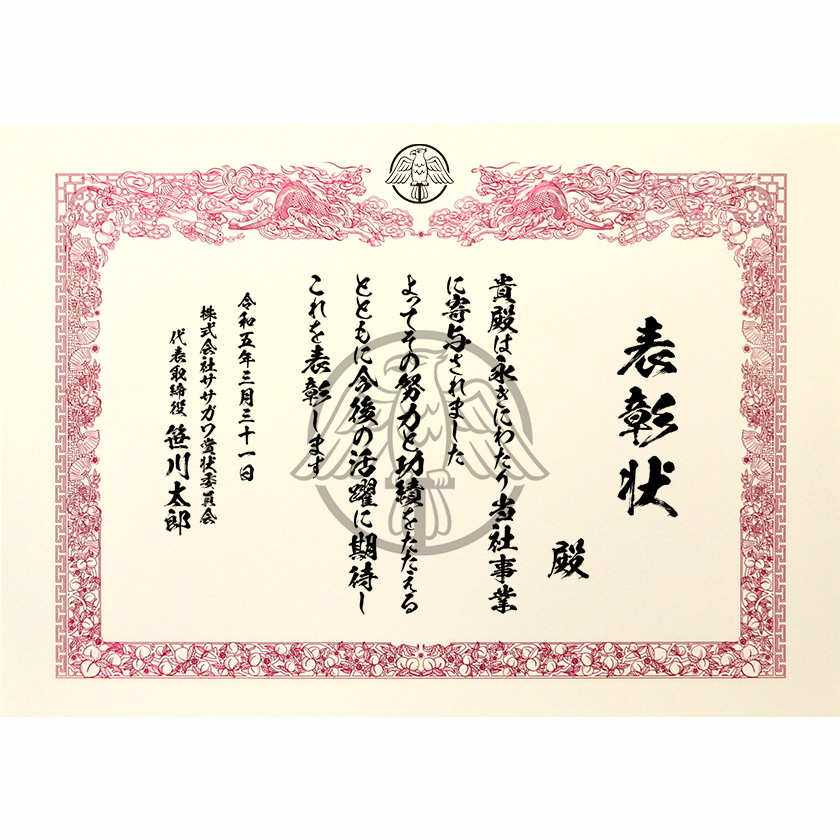 表彰状
殿
貴殿は永きにわたり当社事業
に寄与されました
よってその努力と功績をたたえる
とともに今後の活躍に期待し
これを表彰します
令和五年三月三十一日
株式会社ササガワ賞状委員会
代表取締役 笹川太郎